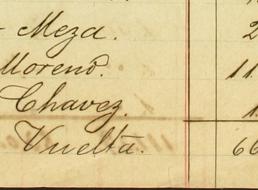 Meza. 2
Moreno. 11
Chavez. 1
Vuelta. 66